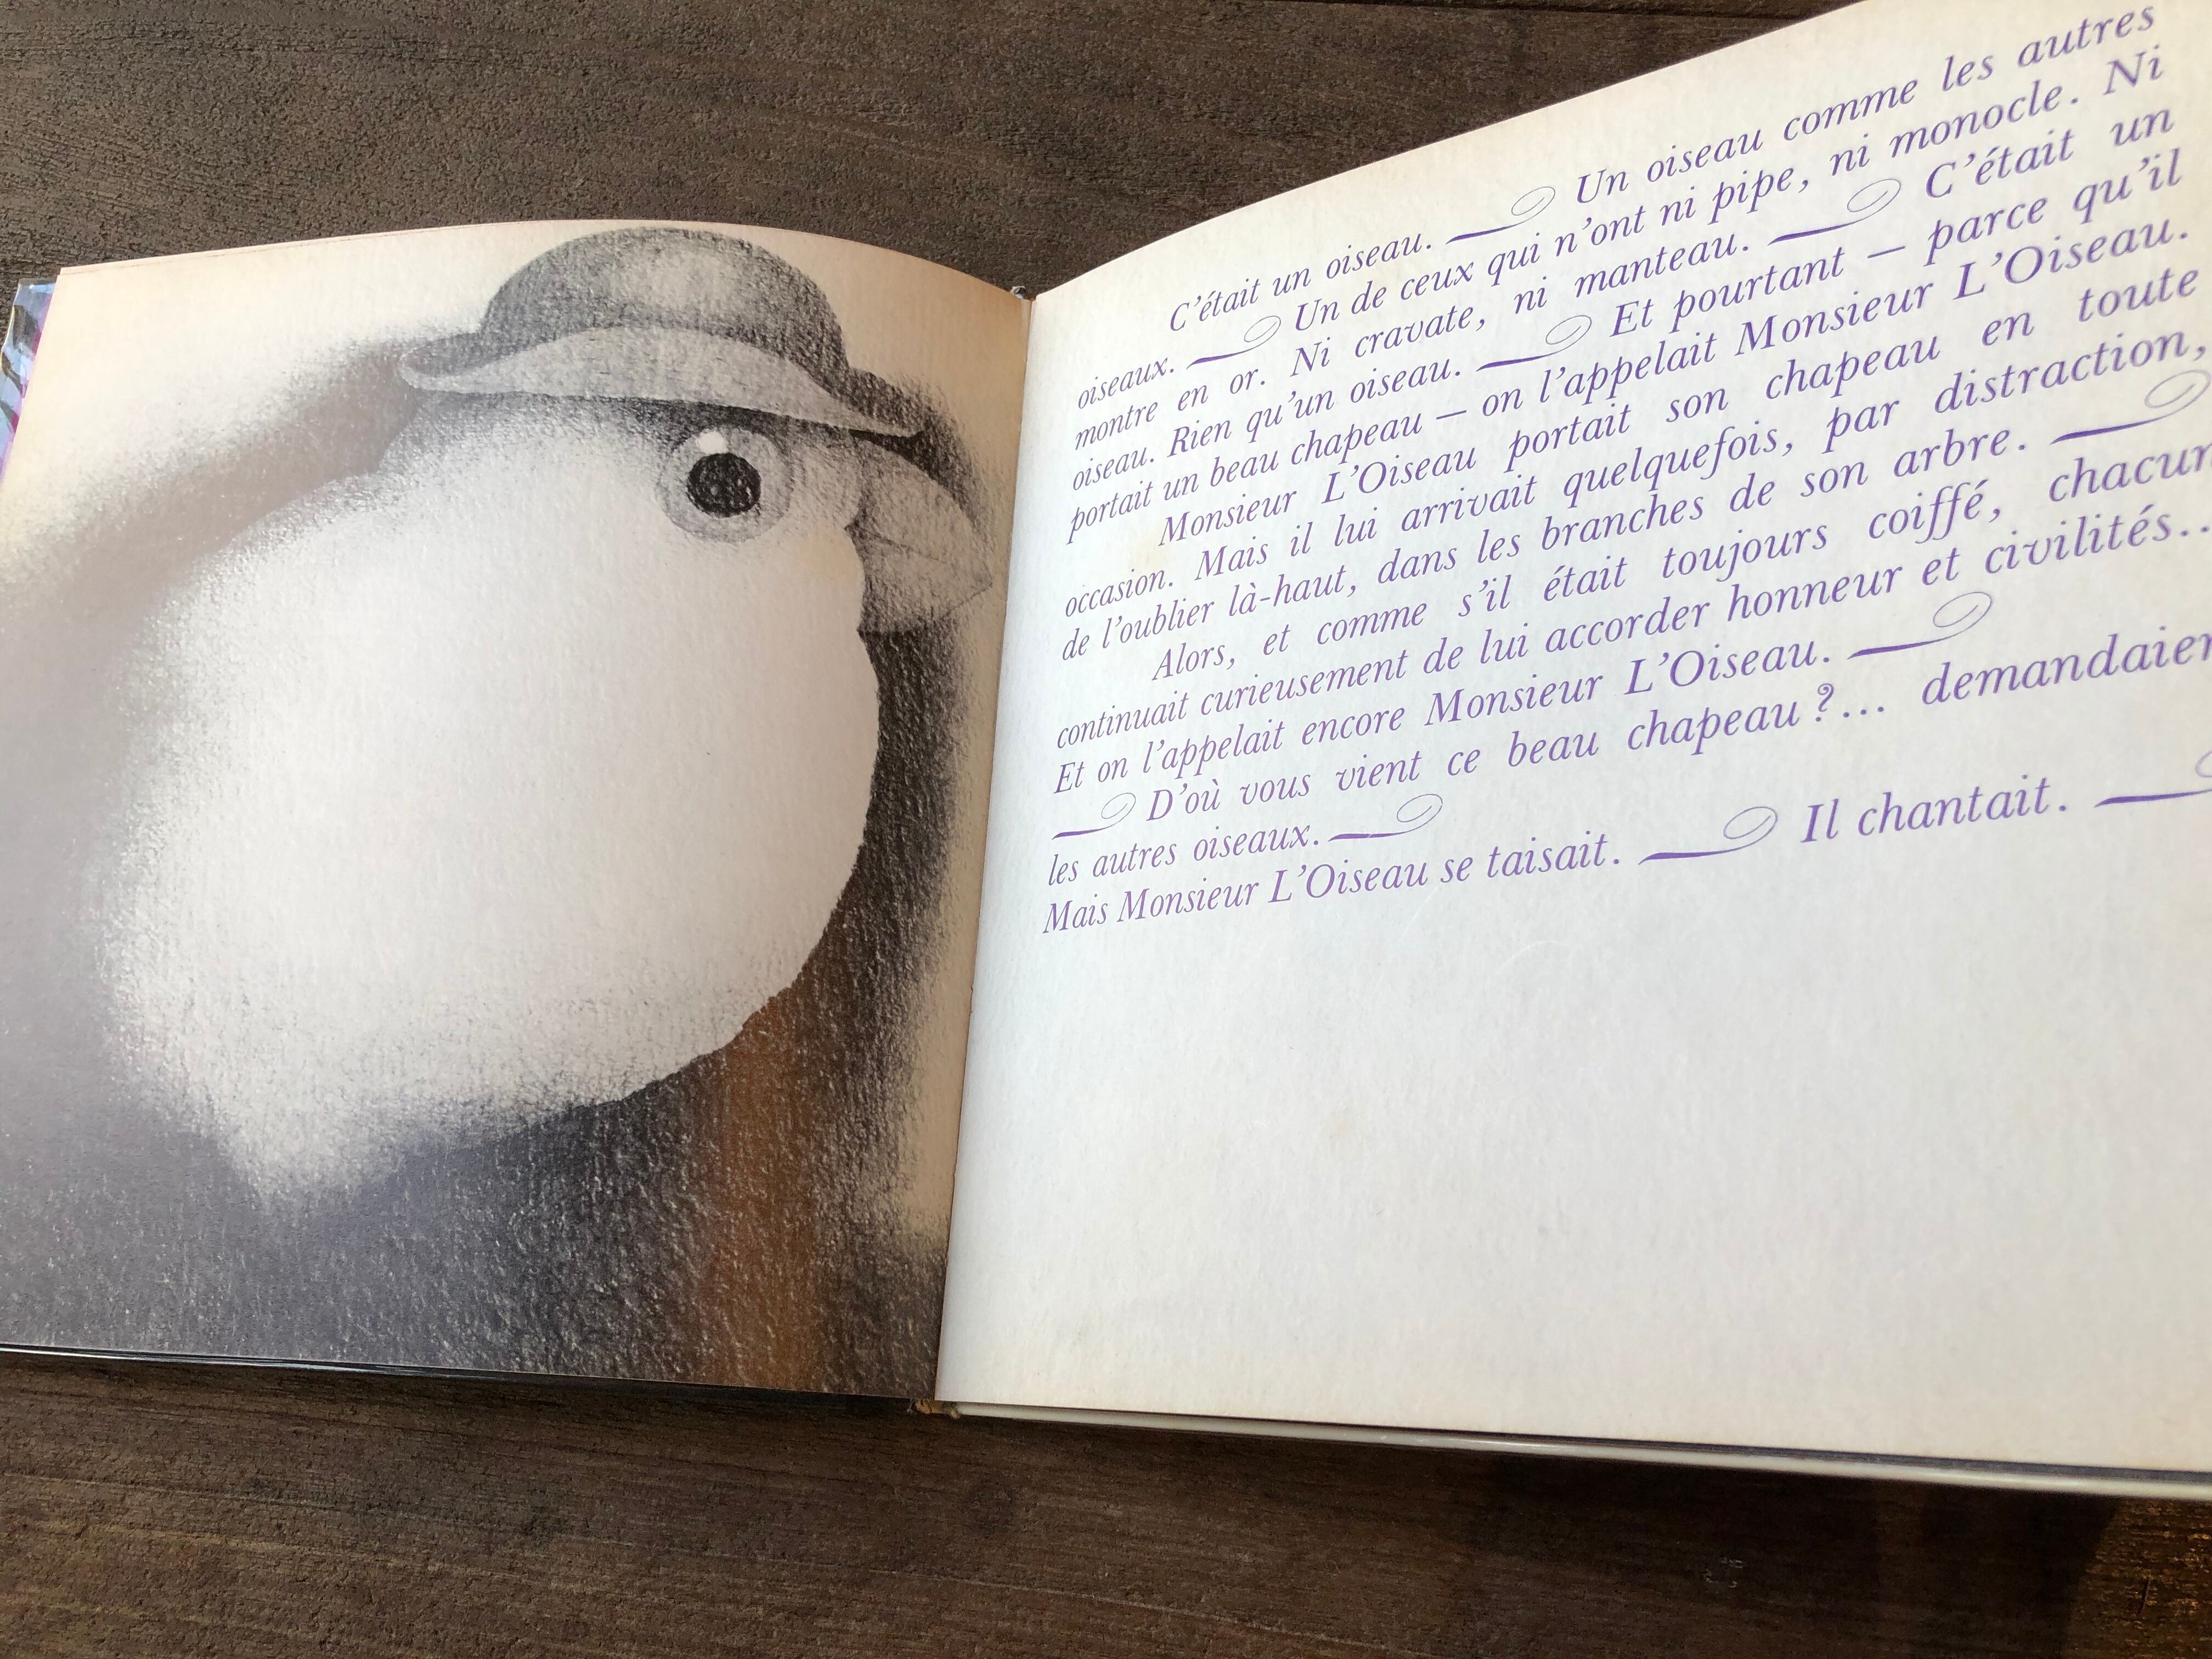 C'était un oiseau. Un oiseau comme les autres
oiseaux. Un de ceux qui n'ont ni pipe, ni monocle. Ni
montre en or. Ni cravate, ni manteau. C'était un
oiseau. Rien qu'un oiseau. Et pourtant — parce qu'il
portait un beau chapeau — on l'appelait Monsieur L'Oiseau.
Monsieur L'Oiseau portait son chapeau en toute
occasion. Mais il lui arrivait quelquefois, par distraction,
de l'oublier là-haut, dans les branches de son arbre.
Alors, et comme s'il était toujours coiffé, chacun
continuait curieusement de lui accorder honneur et civilités...
Et on l'appelait encore Monsieur L'Oiseau.
D'où vous vient ce beau chapeau ?... demandaien
les autres oiseaux.
Mais Monsieur L'Oiseau se taisait. Il chantait.